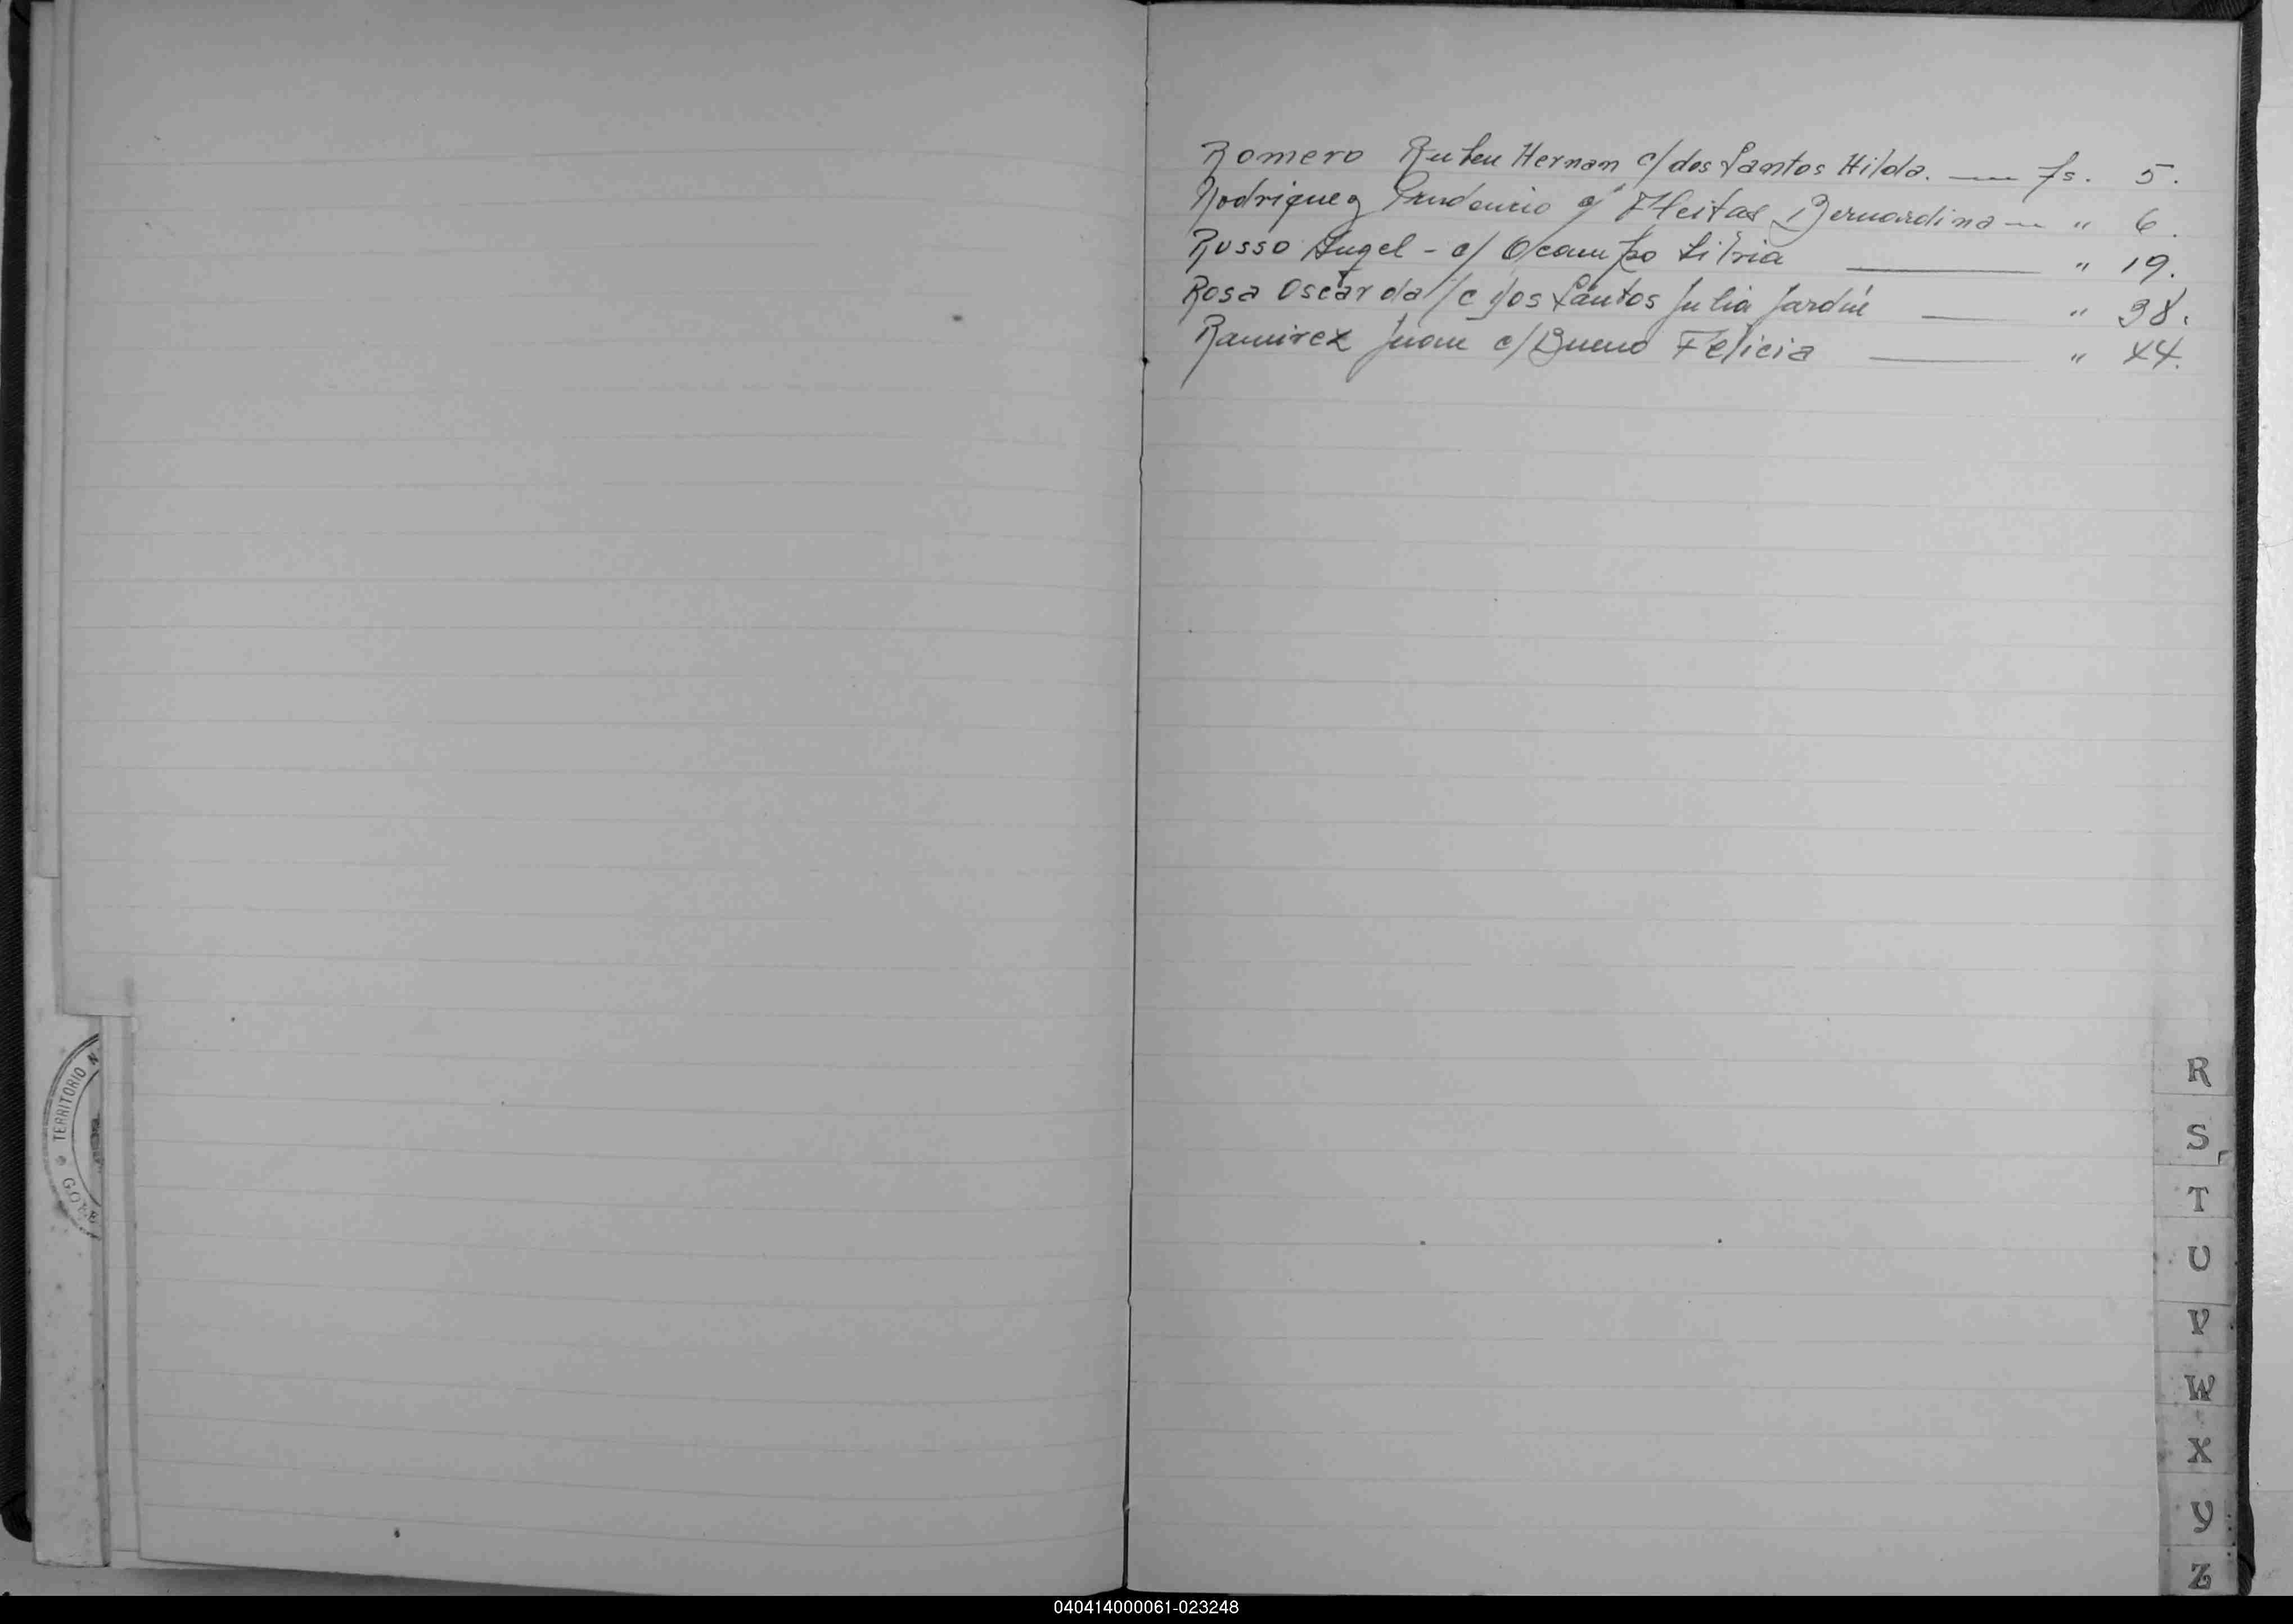 Romero Ruben Hernan c/ dos Santos Hilda. — fs. 5.
Rodriguez Prudencio c/ Fleitas Bernardina — " 6.
Russo Angel - c/ Ocampo Silvia — " 19.
Rosa Oscar da / c dos Santos Julia Jardin — " 38.
Ramirez Juan c/ Bueno Felicia — " 44.
TERRITORIO N
R
S
T
U
V
W
X
Y
Z
040414000061-023248